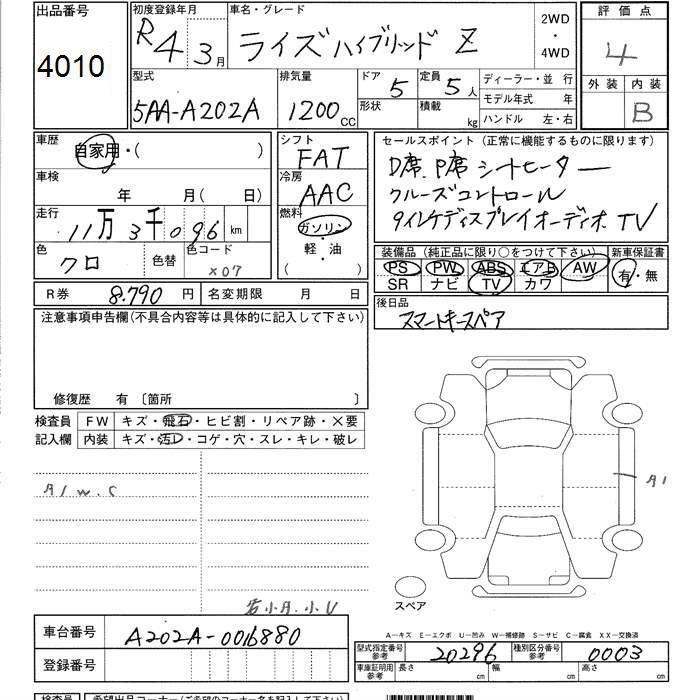 出品番号
4010
初度登録年月
R4 3月
車名・グレード
ライズハイブリッド Z
2WD
・
4WD
評価点
4
外装 内装
B
型式
5AA-A202A
排気量
1200 CC
ドア 5
形状
定員 5人
積載 kg
ディーラー・並 行
モデル年式 年
ハンドル 左・右
車歴
自家用・( )
車検
年 月( 日)
走行
11万3千096 km
色
クロ
色替
色コード
X07
シフト
FAT
冷房
AAC
燃料
ガソリン
・
軽・油
( )
セールスポイント(正常に機能するものに限ります)
D席、P席 シートヒーター
クルーズコントロール
9インチディスプレイオーディオ TV
装備品(純正品に限り○をつけて下さい)
新車保証書
PS PW ABS エアB AW
SR ナビ TV カワ
有・無
R券 8.790 円
名変期限 月 日
後日品
スマートキースペア
注意事項申告欄(不具合内容等は具体的に記入して下さい)
修復歴 有 〔箇所 〕
検査員
記入欄
FW キズ・飛石・ヒビ割・リペア跡・×要
内装 キズ・汚レ・コゲ・穴・スレ・キレ・破レ
A1 W.C
A1
スペア
A-キズ E-エクボ U-凹み W-補修跡 S-サビ C-腐食 XX-交換済
車台番号
A202A-0016880
登録番号
型式指定番号
参考
20296
種別区分番号
参考
0003
車庫証明用
参考
長さ cm 幅 cm 高さ cm
検査員
希望出品コーナー(ご希望のコーナー名を記入して下さい)